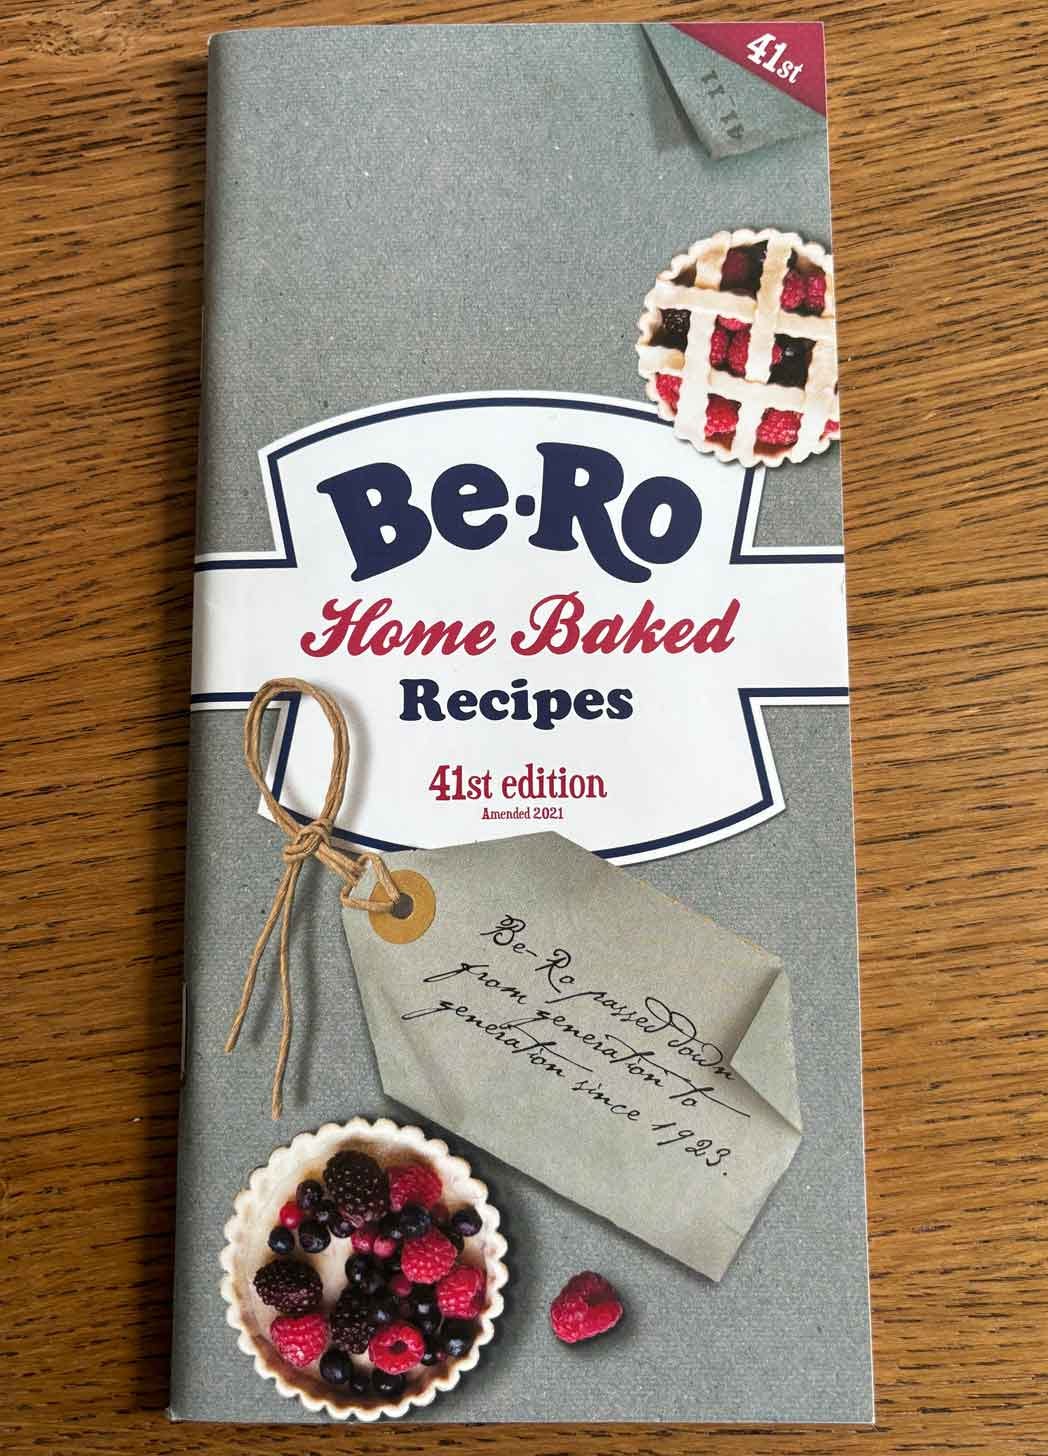 41st
41_11
Be-Ro
Home Baked
Recipes
41st edition
Amended 2021
Be-Ro passed down
from generation to
generation since 1923.